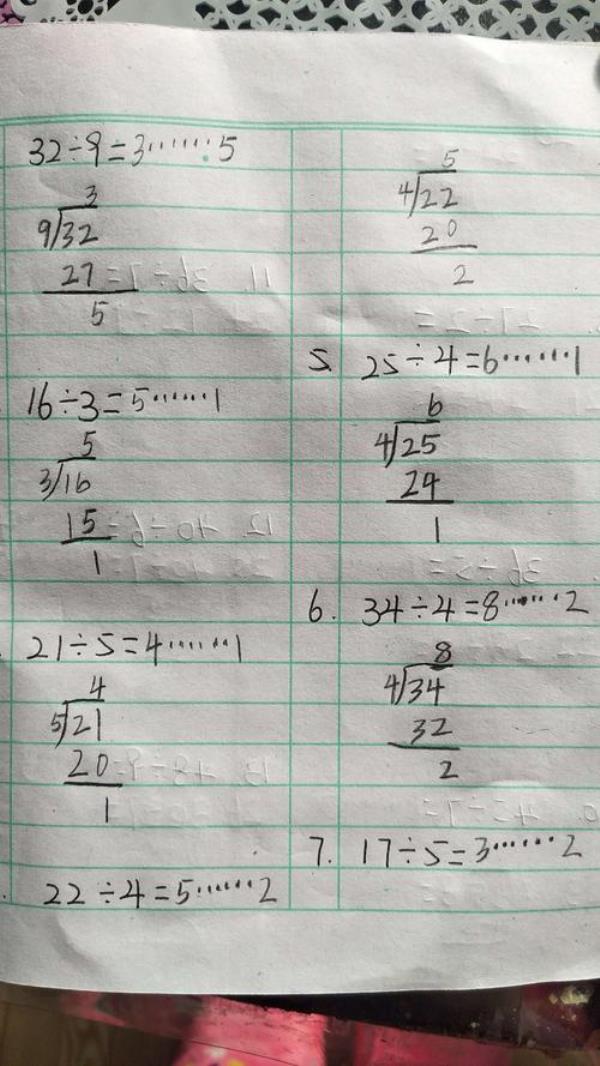 32÷9=3······5
3
9/32
27
5
16÷3=5······1
5
3/16
15
1
21÷5=4······1
4
5/21
20
1
22÷4=5······2
5
4/22
20
2
5. 25÷4=6······1
6
4/25
24
1
6. 34÷4=8······2
8
4/34
32
2
7. 17÷5=3······2